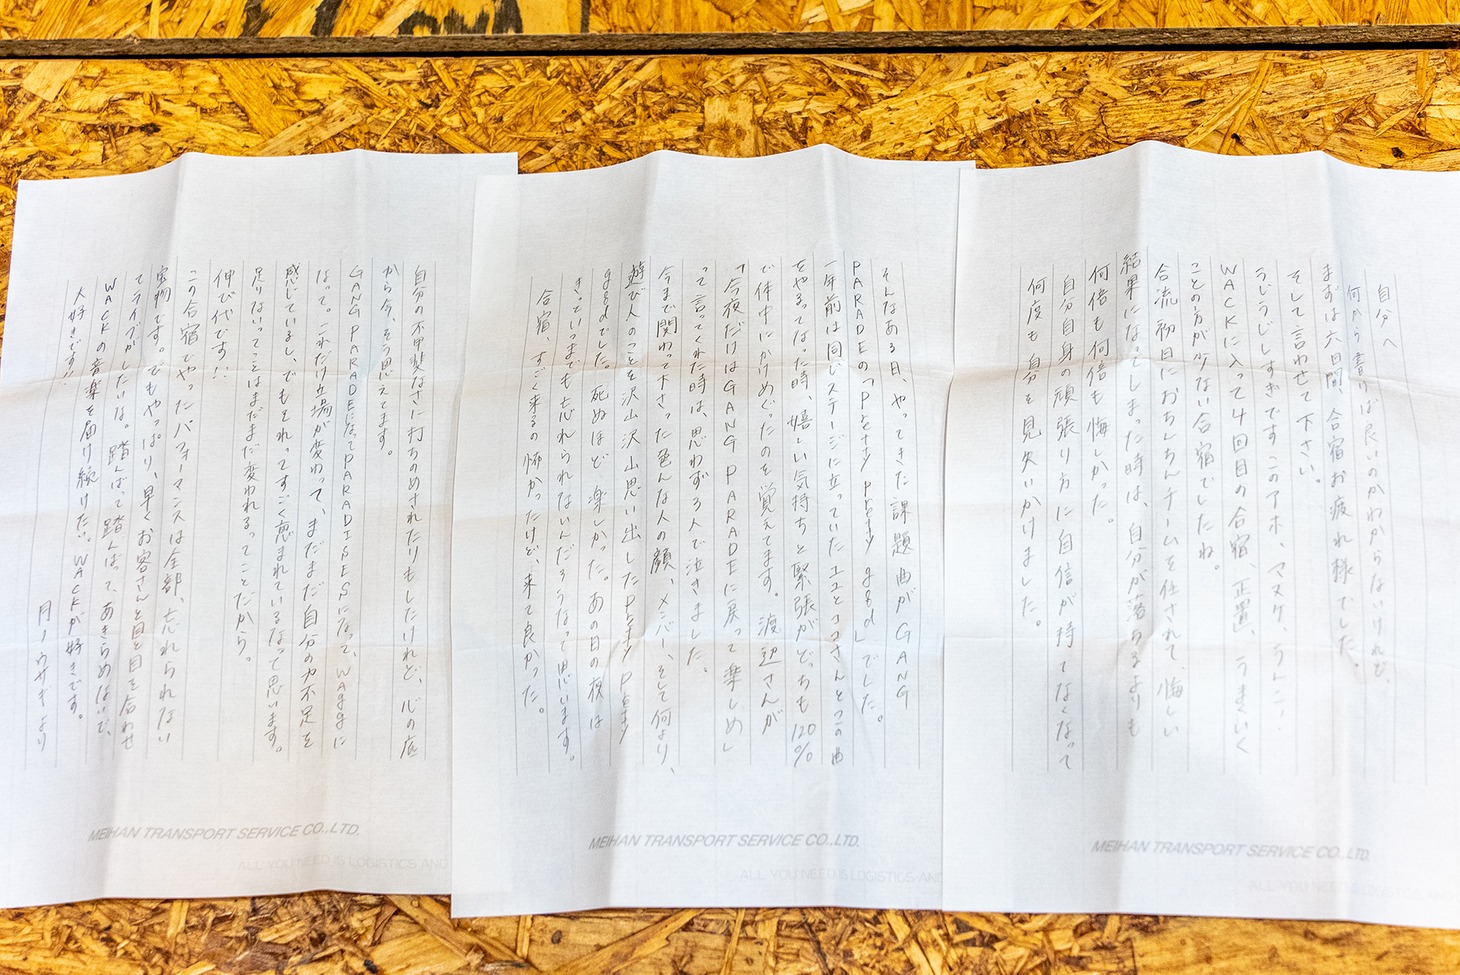 自分へ
何から書けば良いのかわからないけれど、
まずは六日間、合宿お疲れ様でした。
そして言わせて下さい。
うじうじしすぎです!このアホ、マヌケ、うんこ!
WACKに入って4回目の合宿、正直、うまくいく
ことの方が少ない合宿でしたね。
合流初日におちんちんチームを任されて、悔しい
結果になってしまった時は、自分が落ちるよりも
何倍も何倍も悔しかった。
自分自身の頑張り方に自信が持てなくなって
何度も自分を見失いかけました。
そんなある日、やってきた課題曲がGANG
PARADEの「Pretty Pretty good」でした。
一年前は同じステージに立っていたユユとココさんとこの曲
をやるってなった時、嬉しい気持ちと緊張がどっちも120%
で体中にかけめぐったのを覚えてます。渡辺さんが
「今夜だけはGANG PARADEに戻って楽しめ」
って言ってくれた時は、思わず3人で泣きました。
今まで関わって下さった色んな人の顔、メンバー、そして何より、
遊び人のことを沢山沢山思い出したPretty Pretty
goodでした。死ぬほど楽しかった。あの日の夜は
きっといつまでも忘れられないんだろうなって思います。
合宿、すごく来るの怖かったけど、来て良かった。
自分の不甲斐なさに打ちのめされたりもしたけれど、心の底
から今、そう思えてます。
GANG PARADEになってPARADISESになって、WAggに
なって。これだけ立場が変わって、まだまだ自分の力不足を
感じているし、でもそれってすごく恵まれているなって思います。
足りないってことはまだまだ変われるってことだから。
伸び代です!!
この合宿でやったパフォーマンスは全部、忘れられない
宝物です。でもやっぱり、早くお客さんと目と目を合わせ
てライブがしたいな。踏んばって踏んばって、あきらめないで、
WACKの音楽を届け続けたい。WACKが好きです。
大好きです!!
月ノウサギより
MEIHAN TRANSPORT SERVICE CO.,LTD.
ALL YOU NEED IS LOGISTICS AND
MEIHAN TRANSPORT SERVICE CO.,LTD.
ALL YOU NEED IS LOGISTICS AND
MEIHAN TRANSPORT SERVICE CO.,LTD.
ALL YOU NEED IS LOGISTICS AND